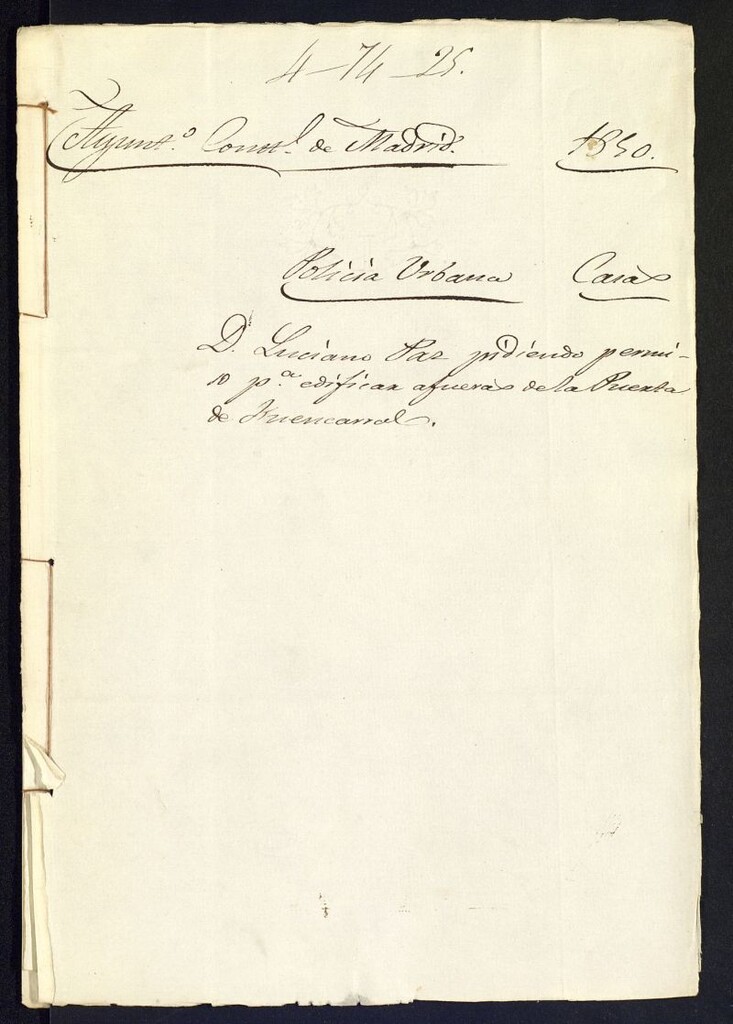 4-74-25.
Ayunt.º Const.l de Madrid. 1850.
Policia Urbana Casas
D. Luciano Paz pidiendo permi-
so p.a edificar afueras de la Puerta
de Fuencarral.